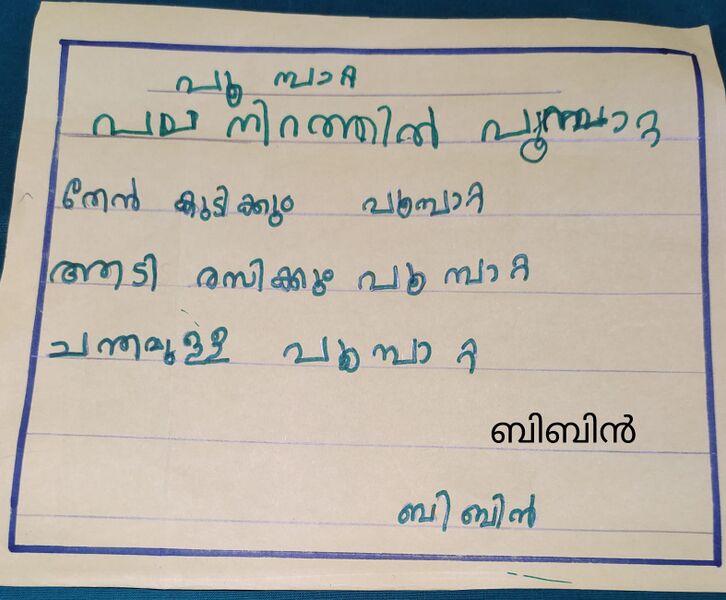 പൂ മ്പാറ്റ
പല നിറത്തിൽ പൂമ്പാറ്റ
തേൻ കുടിക്കും പൂമ്പാറ്റ
ആടി രസിക്കും പൂ മ്പാറ്റ
ചന്തമുള്ള പൂമ്പാ റ്റ
ബിബിൻ
ബി ബിൻ